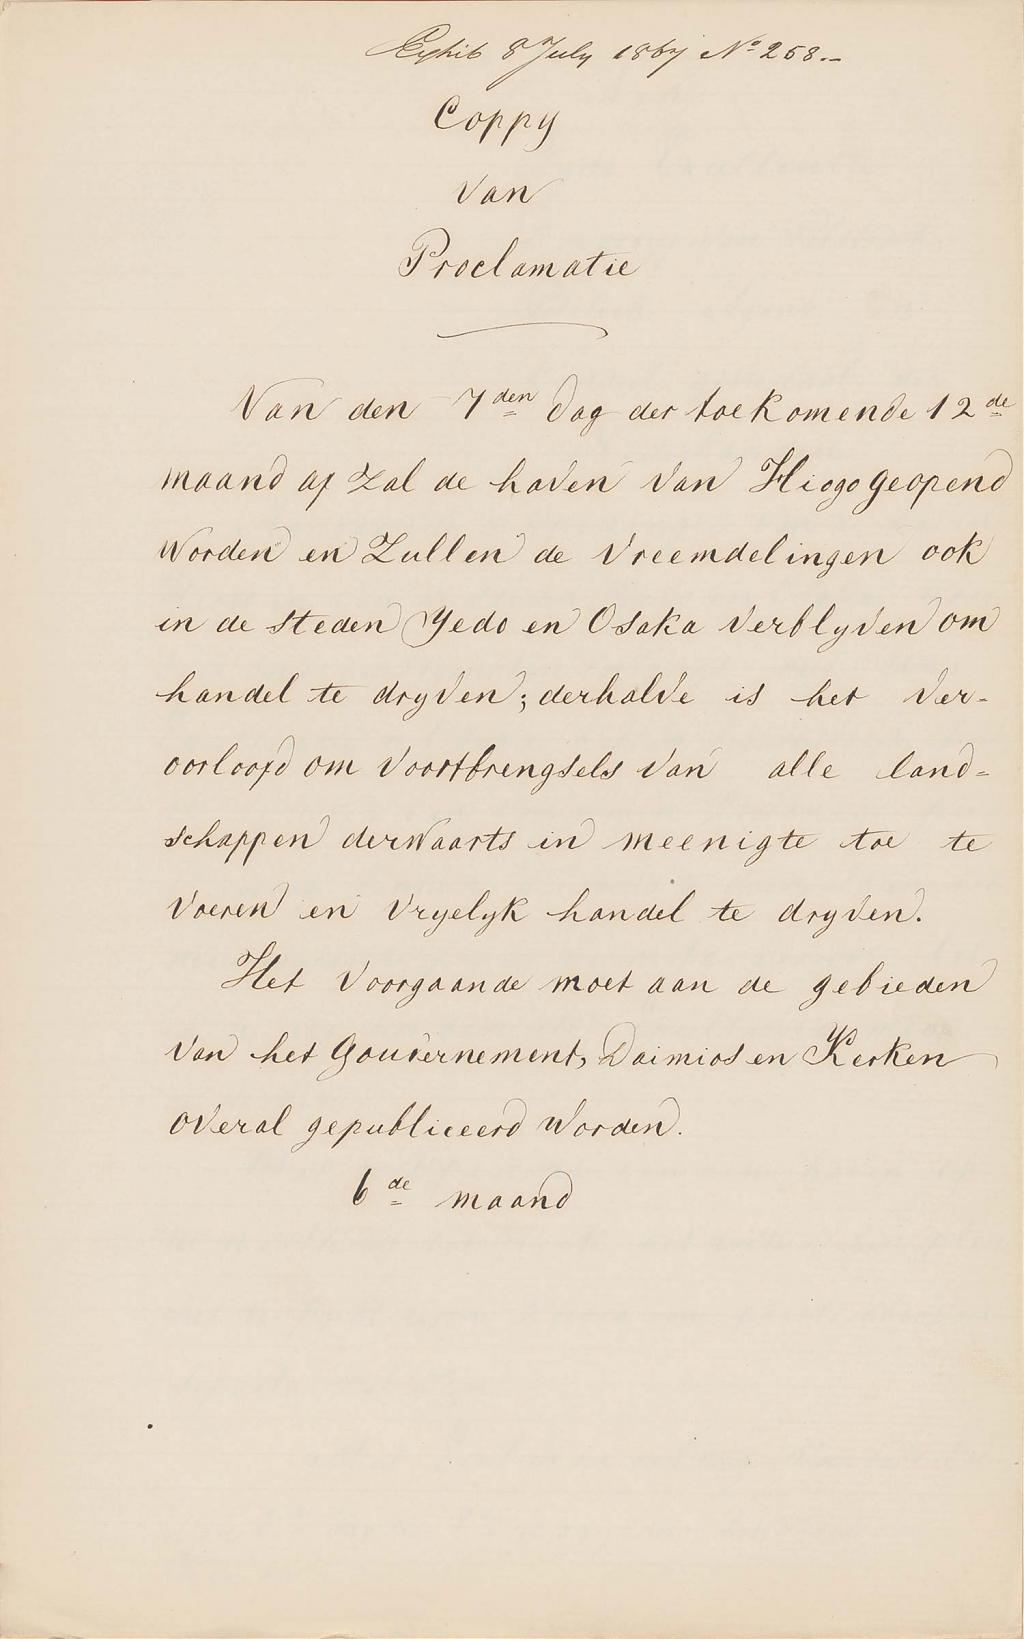 Exhib 8 July 1867 No 258.-
Coppy
van
Proclamatie
Van den 7den dag der toekomende 12de
maand af zal de haven van Hiogo geopend
worden en zullen de vreemdelingen ook
in de steden Yedo en Osaka verblyven om
handel te dryven; derhalve is het ver-
oorloofd om voortbrengsels van alle land=
schappen derwaarts in meenigte toe te
voeren en vryelyk handel te dryven.
Het voorgaande moet aan de gebieden
van het Gouvernement, Daimios en Kerken
overal gepubliceerd worden.
6de maand